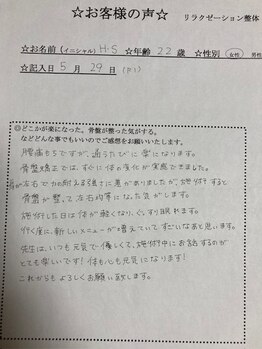 ☆お客様の声☆ リラクゼーション整体
☆お名前(イニシャル) H・S ☆年齢 22 歳 ☆性別 女性 男性
☆記入日 5 月 29 日
◎どこかが楽になった。骨盤が整った気がする。
などどんな事でもいいのでご感想をお願いいたします。
腰痛もちですが、通うたびに楽になります。
骨盤矯正では、すぐに体の変化が実感できました。
左右で力の耐える強さに差がありましたが、施術すると
骨盤が整って、左右均等になった気がします。
施術した日は体が軽くなり、ぐっすり眠れます。
行く度に、新しいメニューが増えていてすごいなあと思います。
先生はいつも元気で優しくて、施術中にお話するのが
とても楽しいです!体も心も元気になります!
これからもよろしくお願い致します。